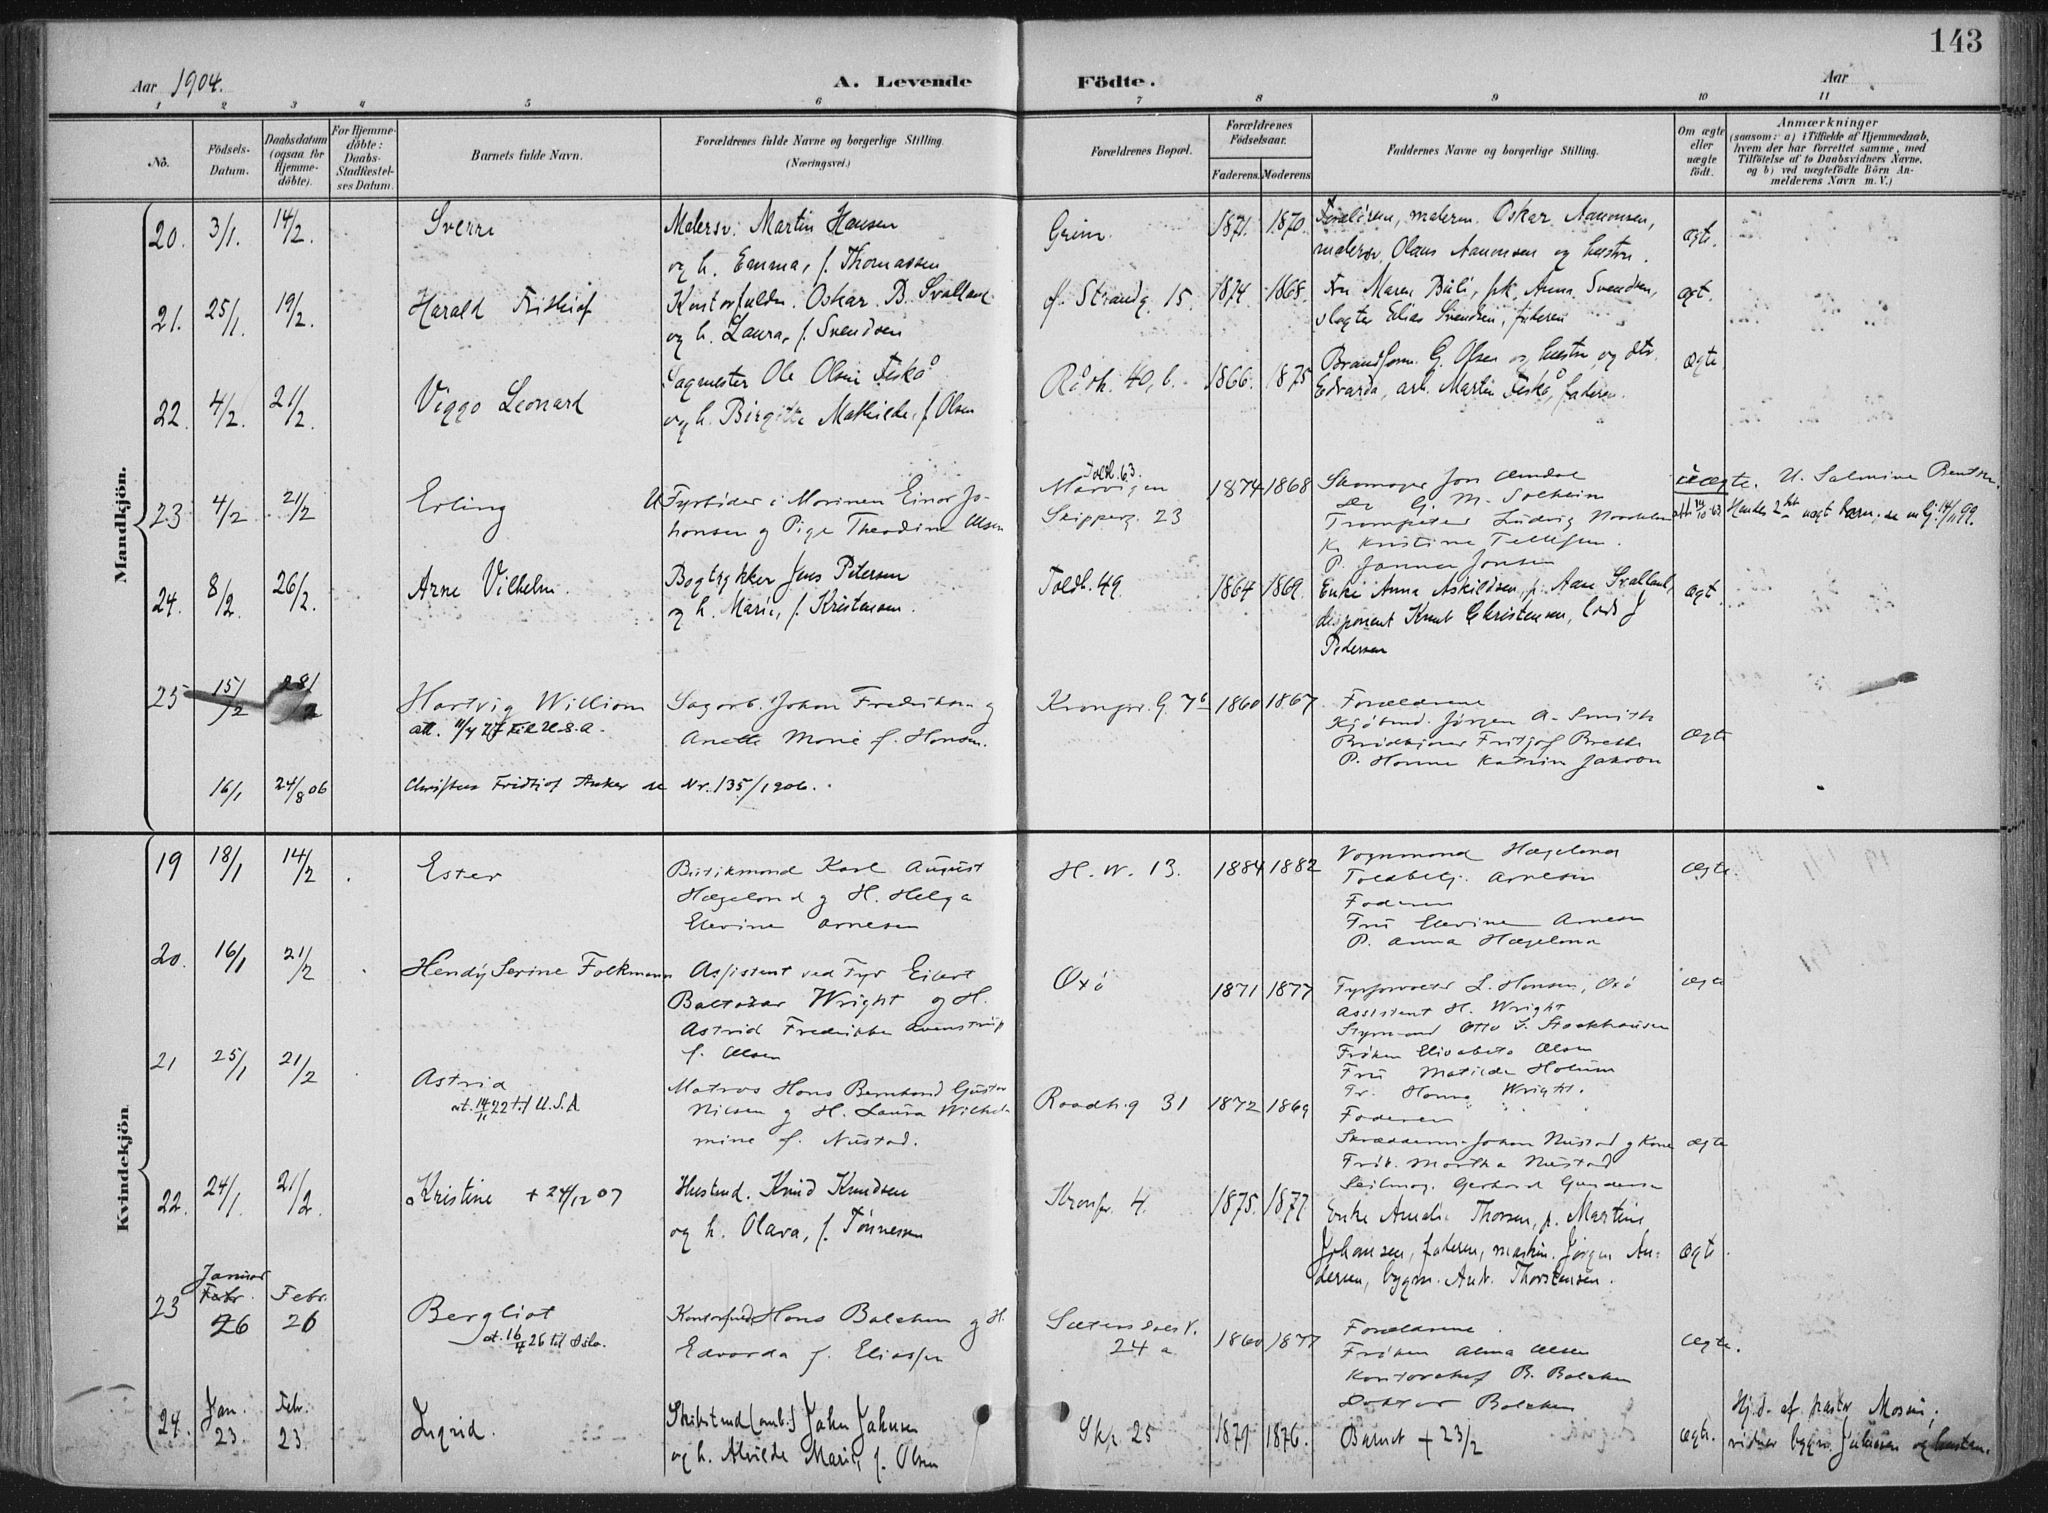 143
Aar 1904. A. Levende Födte. Aar
1 2 3 4 5 6 7 8 9 10 11
No.
Födsels-Datum.
Daabsdatum (ogsaa for Hjemme-döbte).
For Hjemme-döbte: Daabs-Stadfæstel-ses Datum.
Barnets fulde Navn.
Forældrenes fulde Navne og borgerlige Stilling. (Næringsvei.)
Forældrenes Bopæl.
Forældrenes Födselsaar.
Faderens. Moderens
Faddernes Navne og borgerlige Stilling.
Om ægte eller uægte födt.
Anmærkninger
(saasom: a) i Tilfælde af Hjemmedaab,
hvem der har forrettet samme, med
Tilföielse af to Daabsvidners Navne,
og b) ved uægtefödte Börn An-
melderens Navn m. V.)
Mandkjön.
20. 3/1. 14/2. Sverre
Malersv. Martin Hansen
og h. Emma, f. Thomassen
Grim 1871. 1870.
Forældren, malerm. Oskar Aanonsen,
malersv. Olaus Aanonsen og hustru.
ægte.
21. 25/1. 19/2. Harald Fridthjof
Kontorfuldm. Oskar B. Svalland
og h. Laura, f. Svendsen
ø. Strandg. 15. 1874 1868.
Fru Maren Büli, pk. Anna Svendsen,
slagter Elias Svendsen, faderen
ægt.
22. 4/2. 21/2. Viggo Leonard
Sagmester Ole Olsen Fiskå
og h. Birgitte Mathilde, f. Olsen
Rådh. 40, b. 1866. 1875
Brandform. G. Olsen og hustru og dtr.
Edvarda, arb. Martin Fiskå, faderen.
ægte
23 4/2 21/2 Erling
U Fyrböder i Marinen Einar Jo-
hansen g Pige Theodine Olsen
Toldb. 63.
Marvigen
Skipperg. 23
1874 1868
Skomager Jon Omdal
Dr G. M. Solheim
Trompeter Ludvig
K. Kristine Tellefsen.
P. Janna Jonsen
uægte. U. Salmine Bentsen.
Hendes 2det uægt barn, se mbj. 14/11 99.
24. 8/2. 26/2. Arne Vilhelm.
Bogtrykker Jens Petersen
og h. Marie, f. Kristensen.
Toldb. 49. 1864 1869.
Enke Anna Askildsen, p. Aase Svalland,
disponent Knut Christensen, lods J
Pedersen
ægt.
25 15/2 28/2 Hartvig William
att. 11/4 27 til U.S.A.
Sagarb. Johan Fredriksen g
Anette Marie f. Hansen.
Kronpr. G. 7b 1860 1867
Forældrene
Kjøbmd. Jørgen A. Smith
Brødkjører Fritjof Brekke
P. Hanna Katrin Jakobsen
ægte
16/1 24/8 06 Christen Fridtjof Anker se Nr. 135/1906.
Kvindekjön.
19 18/1 14/2 Ester
Butikmand Karl August
Hægeland g H. Helga
Elevine Arnesen
H. W. 13. 1884 1882
Vognmand Hægeland
Toldbetj. Arnesen
Faderen
Fru Elevine Arnesen
P. Anna Hægeland
ægte.
20. 16/1 21/2 Hendy Serine Folkmann
Assistent ved Fyr Eilert
Baltazar Wright g H.
Astrid Fredrikke Avenstrup
f. Olsen
Oxö 1871 1877
Fyrforvalter L. Hansen, Oxö
Assistent H. Wright
Styrmand Otto S. Stockhausen
Frøken Elisabeto Olsen
Fru Matilde Holum
Fr. Hanna Wright.
ægte
21 25/1 21/2 Astrid
at. 14/11 22 til U.S.A
Matros Hans Bernhard Gustav
Nilsen g H. Laura Wilhel
mine f. Nustad.
Raadh.g 31 1872 1869
Faderen
Skræddermr Johan Nustad g Kone
Frøk. Martha Nustad
Seilmag. Gerhard Gundersen
ægte
22. 24/1. 21/2. Kristine + 24/12 07
Hustmd. Knud Knudsen
og h. Olava, f. Tønnesen
Kronpr. 4. 1875. 1877.
Enke Amalie Thorsen, p. Martine
Johansen, faderen, maskin. Jørgen An-
dersen, bygm. Ant. Thorstensen.
ægte
23 Januar Febr. 26 Febr. 26 Bergliot
at. 16/4 26 til Oslo.
Kontorfuldm Hans Balchen g H.
Edvarda f. Eliassen
Sætersdals V.
24 a
1860 1877
Forældrene.
Frøken Alma Olsen
Kontorchef B. Balchen
Doktor Balchen
ægte.
24. Jan. 23. Febr. 23. Ingrid.
Skibstmd (amb.) John Johnsen
og h. Alvilde Marie, f. Olsen
Skp. 25 1879 1876.
Barnet + 23/2
ægte.
Hj.d. af pastor Mosevi,
vidner bygm. Juliussen og hustru.